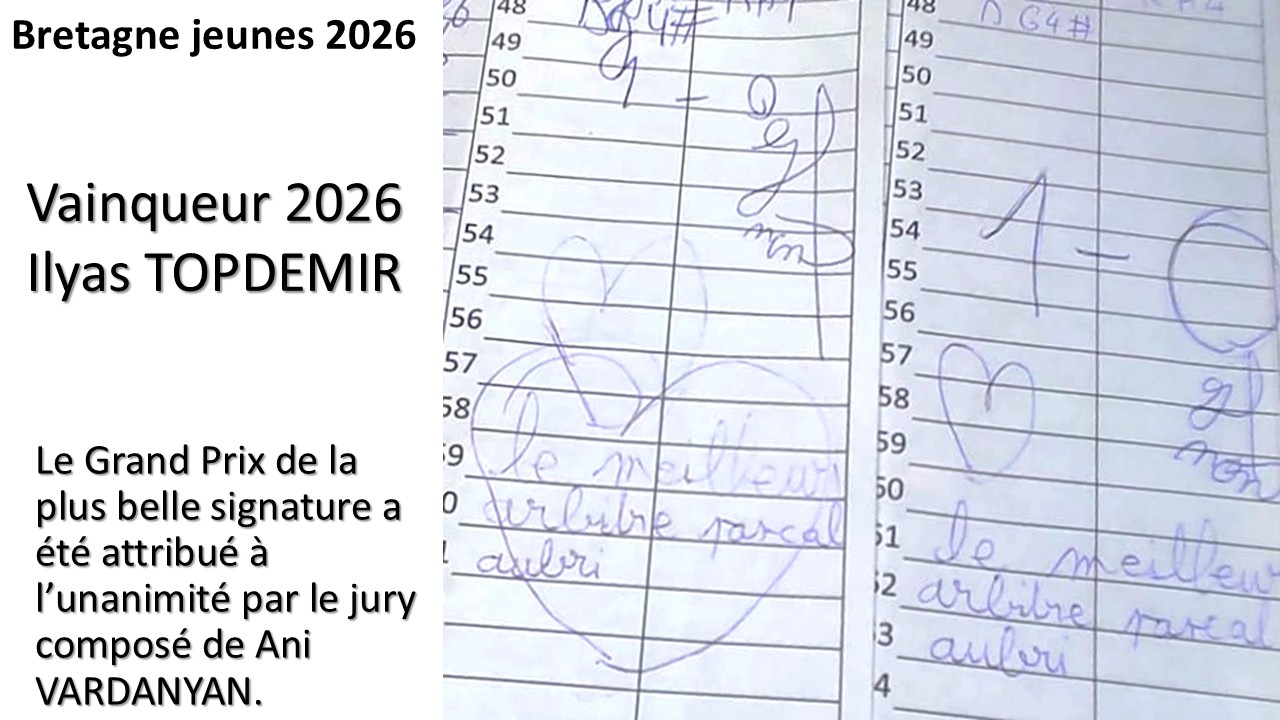 Bretagne jeunes 2026
Vainqueur 2026
Ilyas TOPDEMIR
Le Grand Prix de la
plus belle signature a
été attribué à
l’unanimité par le jury
composé de Ani
VARDANYAN.
48
49
50
51
52
53
54
55
56
57
58
le meilleur
arbitre pascal
aubri
48 D G4#
49
50
51
52
53 1 - 0
54
55
56
57
58
59
non
le meilleur
arbitre pascal
aubri